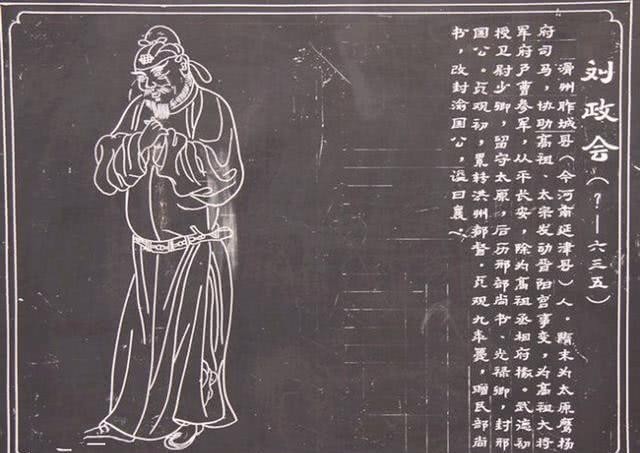 刘政会(?—六三五)
滑州胙城县(今河南延津县)人。隋末为太原鹰扬
府司马,协助高祖、太宗发动晋阳宫事变,为高祖大将
军府户曹参军,从平长安,除为高祖丞相府掾。武德初
授卫尉少卿,留守太原,后历邢部尚书、光禄卿,封邢
国公。贞观初,累转洪州都督。贞观九年薨,赠民部尚
书,改封渝国公,谥曰襄。